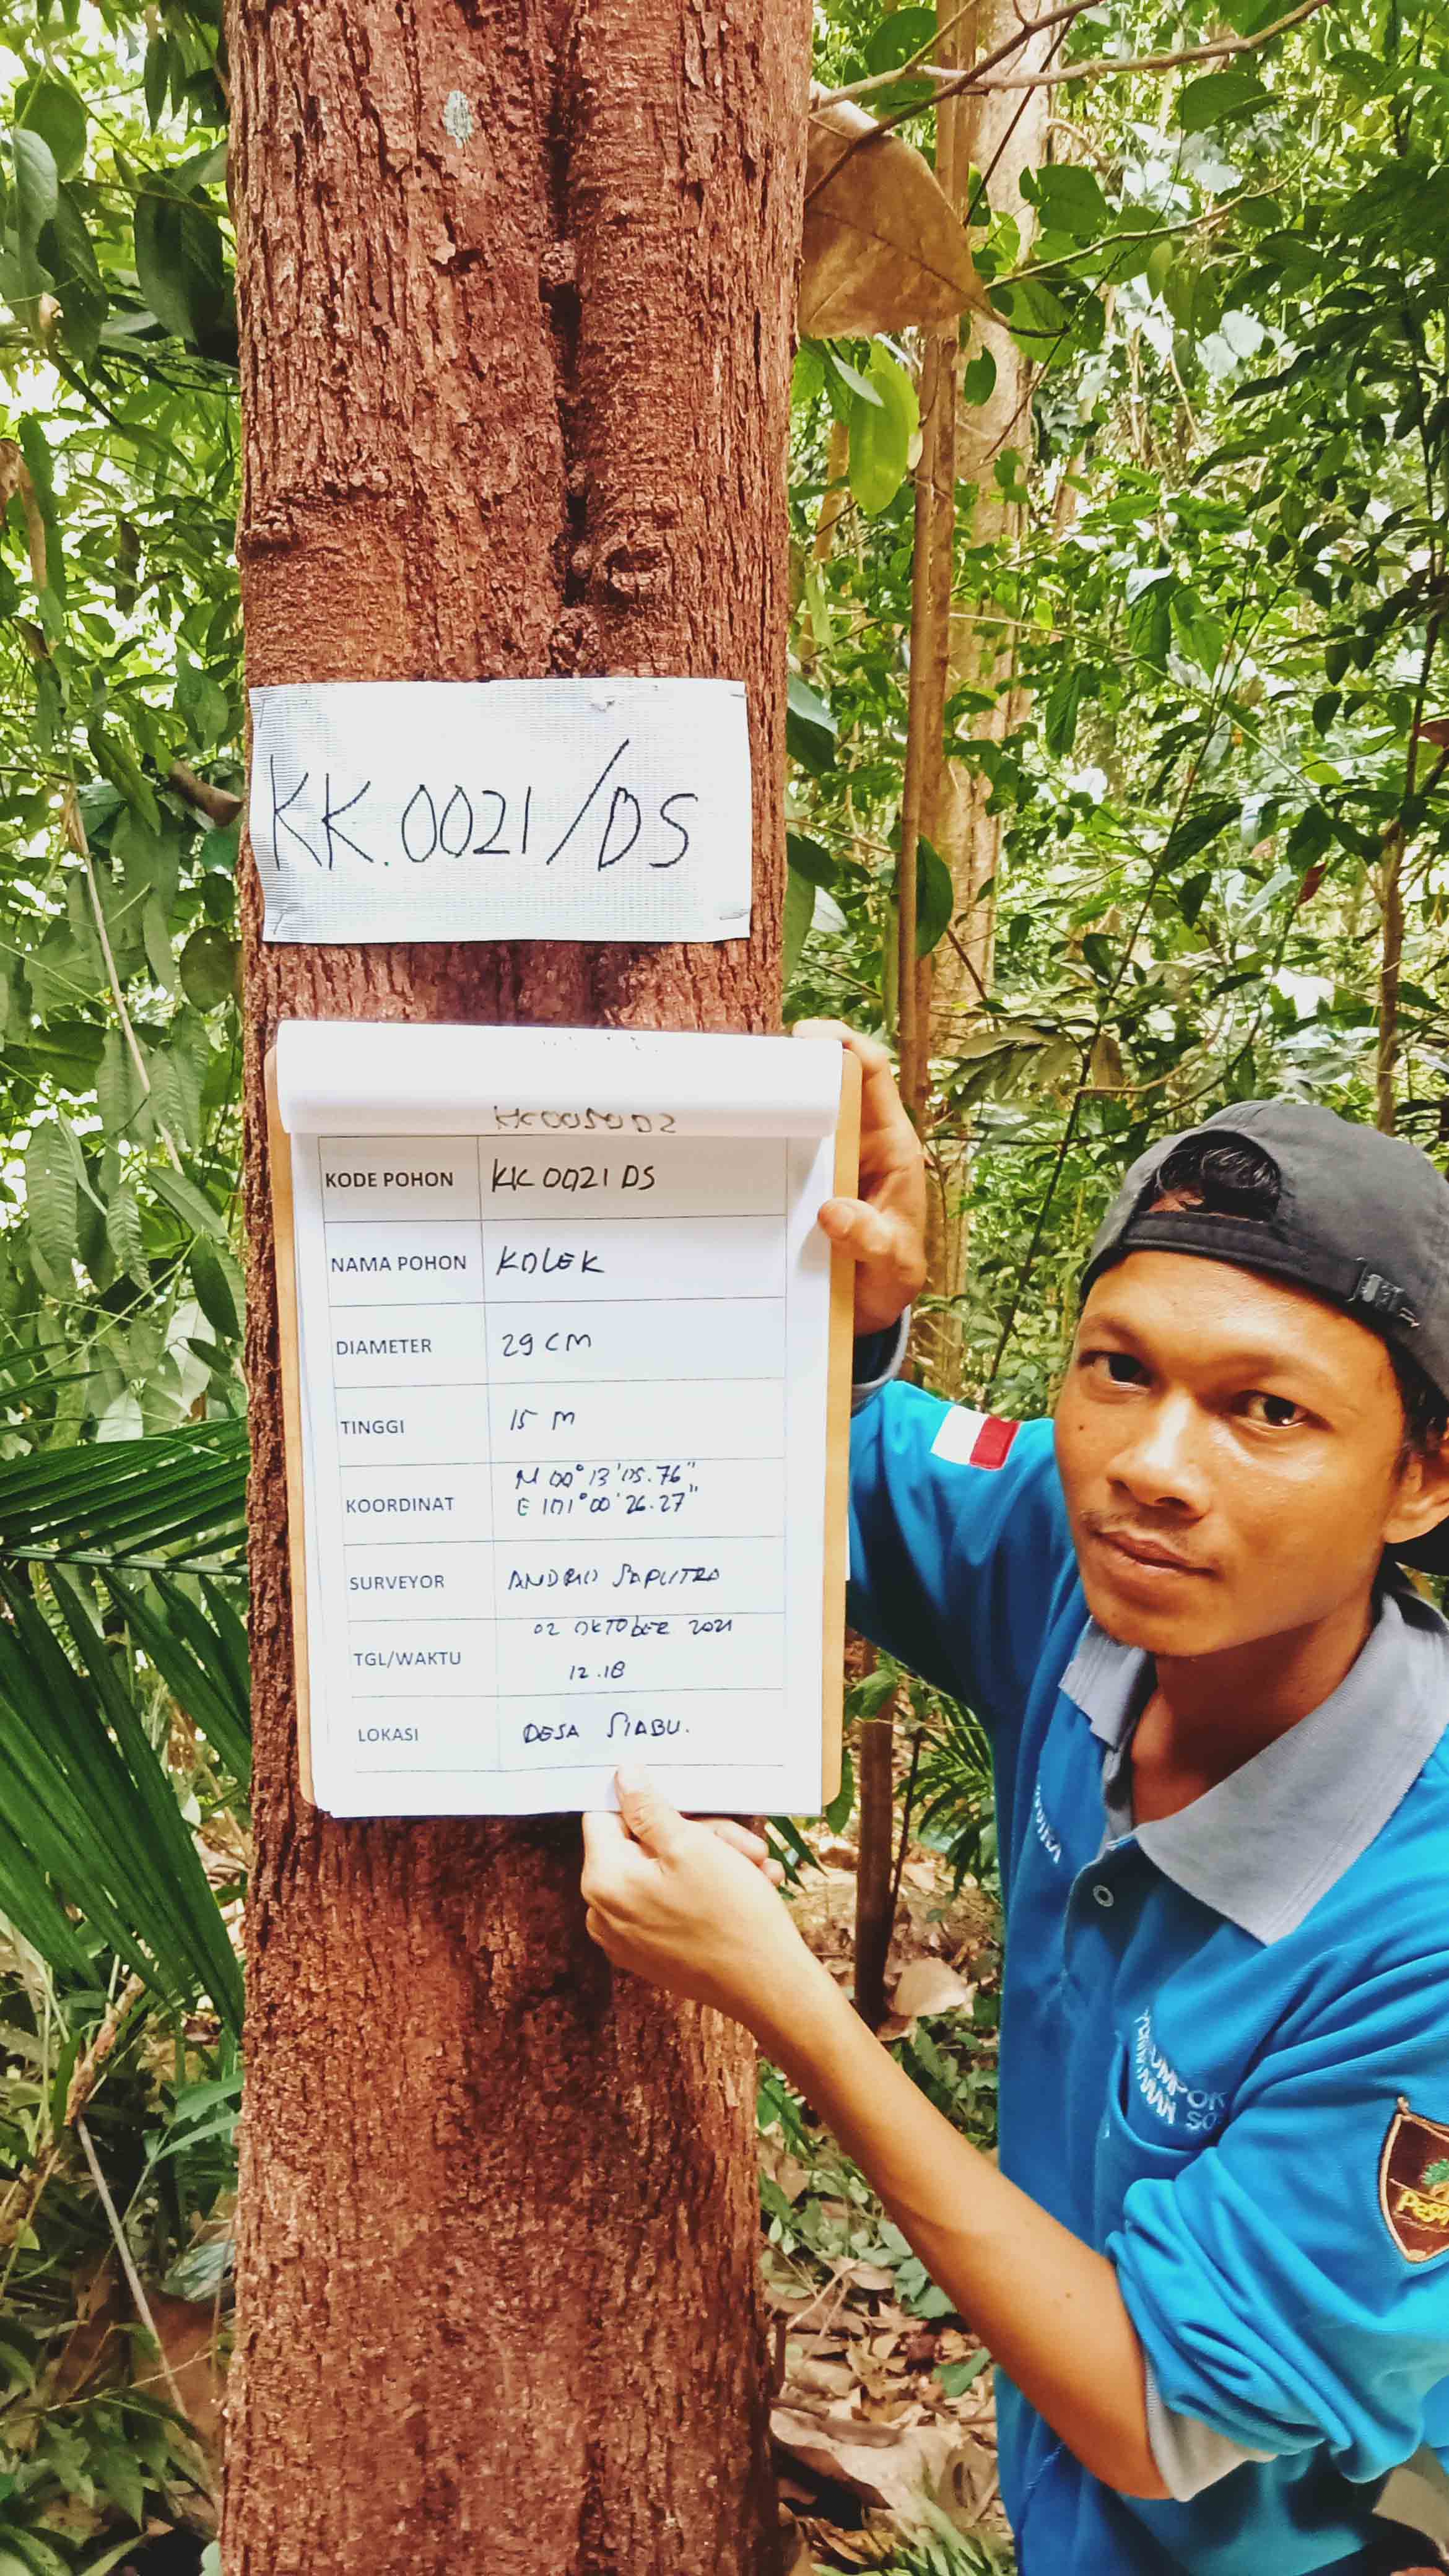 KK.0021/DS
KK0020DS
KODE POHON KK 0021 DS
NAMA POHON KOLEK
DIAMETER 29 CM
TINGGI 15 M
KOORDINAT N 00° 13' 05.76"
E 101° 00' 26.27"
SURVEYOR ANDRIO SAPUTRA
TGL/WAKTU 02 OKTOBER 2021
12.18
LOKASI DESA SIABU.